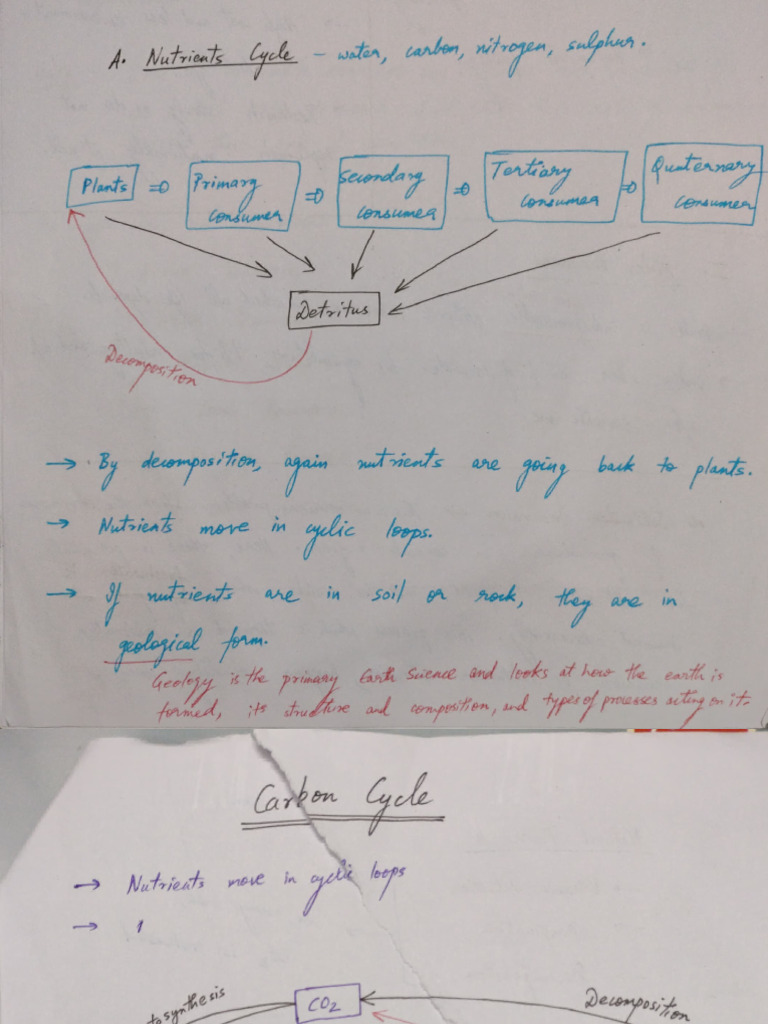 A. Nutrients Cycle – water, carbon, nitrogen, sulphur.
Plants ⇒ Primary consumer ⇒ Secondary consumer ⇒ Tertiary consumer ⇒ Quaternary consumer
Detritus
Decomposition
→ By decomposition, again nutrients are going back to plants.
→ Nutrients move in cyclic loops.
→ If nutrients are in soil or rock, they are in
geological form.
Geology is the primary Earth Science and looks at how the earth is
formed, its structure and composition, and types of processes acting on it.
Carbon Cycle
→ Nutrients move in cyclic loops
→
tosynthesis
CO2
Decomposition